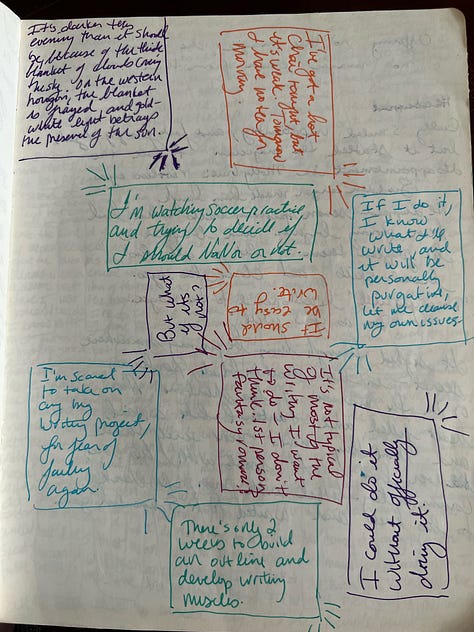 It's darker this
evening than it should
be because of the thick
blanket of clouds
the sky. On the western
horizon, the blanket
is frayed, and gold-
white light betrays
the presence of the sun.
I've got a hot
Chai tonight, but
it's weak. Tomorrow
I have no tea for
morning.
I'm watching soccer practice
and trying to decide if
I should NaNo or not.
If I do it,
I know
what I'll
write, and
it will be
personally
purgative,
let me
my own issues.
But what
if its
not?
It should
be easy to
write.
It's not typical
of most of the
writing I want
to do – I don't
think 1st person
fantasy romance?
I'm scared
to take on
any big
writing project,
for fear of
failing
again.
I could do it
without officially
doing it.
There's only 2
weeks to build
an outline and
develop writing
muscles.